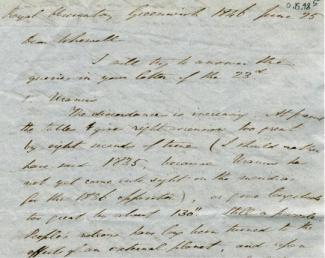 Royal Observatory Greenwich 1846 June 25
Dear Whewell
I will try to answer the
queries in your letter of the 23rd
Uranus
The discordance is increasing. At present
the tables give right ascension too great
by eight seconds of time (I should rather
have said 1845, because Uranus has
not yet come into sight on the meridian
for the 1846 opposition), or give longitude
too great by about 130". Still a
People's notions have long been turned to the
effect of an external planet, and upon